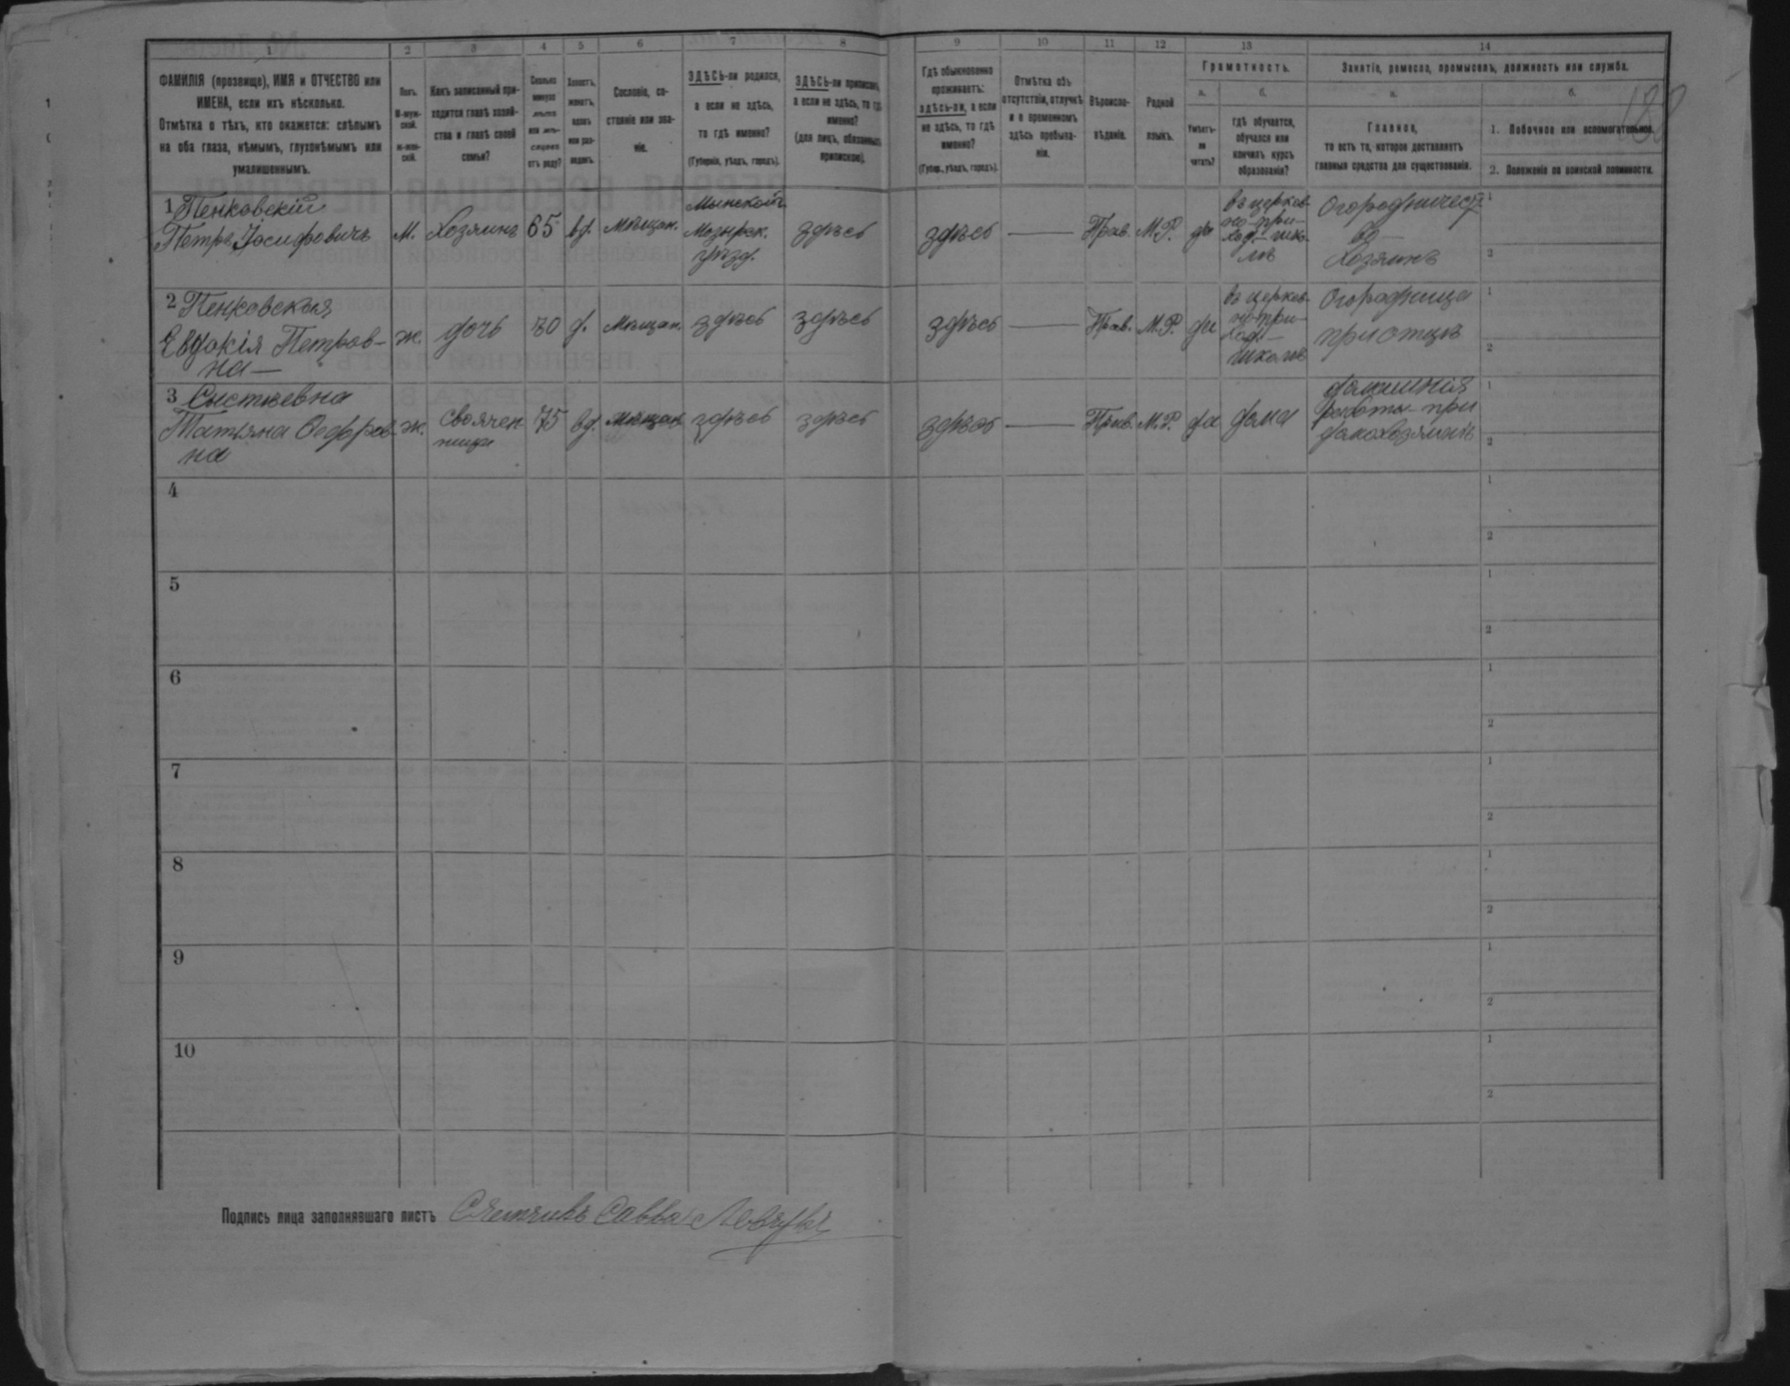 1 2 3 4 5 6 7 8 9 10 11 12 13 14
ФАМИЛІЯ (прозвище), ИМЯ и ОТЧЕСТВО или
ИМЕНА, если ихъ нѣсколько.
Отмѣтка о тѣхъ, кто окажется: слѣпымъ
на оба глаза, нѣмымъ, глухонѣмымъ или
умалишеннымъ.
Полъ.
М-муж-
ской.
ж-жен-
скій.
Какъ записанный при-
ходится главѣ хозяй-
ства и главѣ своей
семьи?
Сколько
минуло
лѣтъ
или мѣ-
сяцевъ
отъ роду?
Холостъ,
женатъ,
вдовъ
или раз-
веденъ.
Сословіе, со-
стояніе или зва-
ніе.
ЗДѢСЬ-ли родился,
а если не здѣсь,
то гдѣ именно?
(Губернія, уѣздъ, городъ).
ЗДѢСЬ-ли приписанъ,
а если не здѣсь, то гдѣ
именно?
(для лицъ, обязанныхъ
припискою).
Гдѣ обыкновенно
проживаетъ:
здѣсь-ли, а если
не здѣсь, то гдѣ
именно?
(Губер., уѣздъ, городъ).
Отмѣтка объ
отсутствіи, отлучкѣ
и о временномъ
здѣсь пребыва-
ніи.
Вѣроиспо-
вѣданіе.
Родной
языкъ.
Грамотность.
а.
Умѣетъ-
ли
читать?
б.
гдѣ обучается,
обучался или
кончилъ курсъ
образованія?
Занятіе, ремесло, промыселъ, должность или служба.
а.
Главное,
то есть то, которое доставляетъ
главныя средства для существованія.
б.
1. Побочное или вспомогательное.
2. Положеніе по воинской повинности.
1 Пенковскій
Петръ Іосифовичъ
М.
Хозяинъ
65
вд.
Мѣщан.
Минской
Мозырск.
уѣзд.
здѣсь
здѣсь
Прав.
М.Р.
да
въ церков-
но-при-
ход. шко-
лѣ
Огородничест-
во
Хозяинъ
1
2
2 Пенковская
Евдокія Петров-
на
ж.
дочь
д.
Мѣщан.
здѣсь
здѣсь
здѣсь
Прав.
М.Р.
да
въ церков-
но-при-
ход.
школѣ
Огородница
при отцѣ
1
2
3
Татьяна Федоров-
на
ж.
своячен
ница
75
вд.
Мѣщан.
здѣсь
здѣсь
здѣсь
Прав.
М.Р.
да
дома
домашнія
работы при
домохозяинѣ
1
2
4
1
2
5
1
2
6
1
2
7
1
2
8
1
2
9
1
2
10
1
2
Подпись лица заполнявшаго листъ Счетчикъ Савва